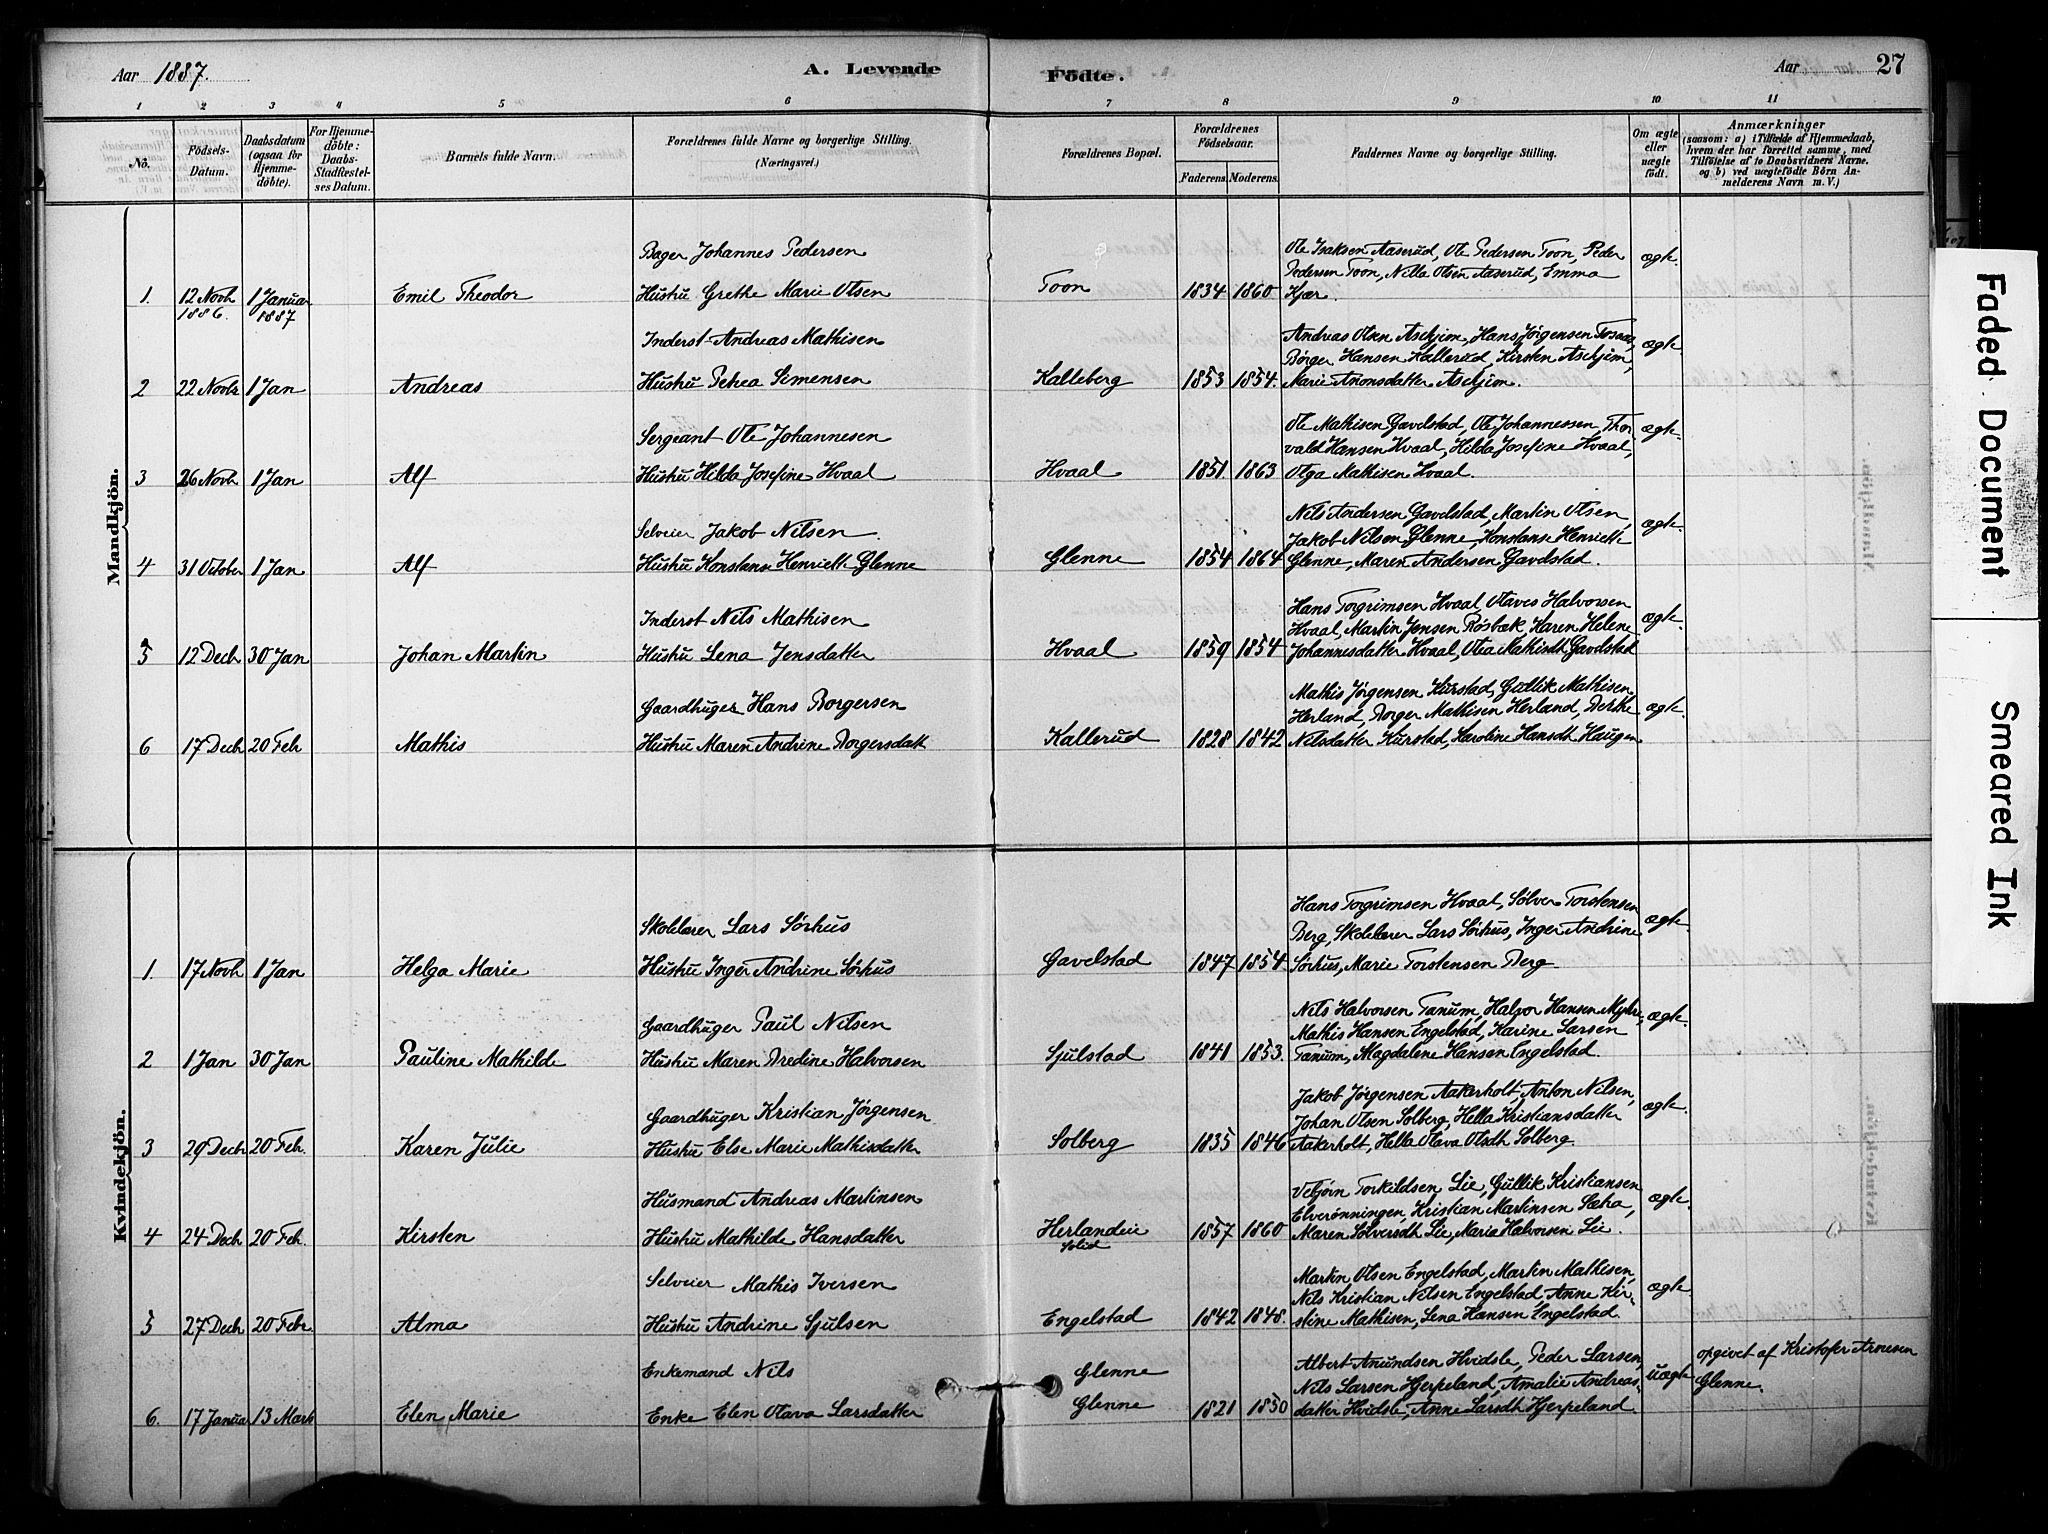 Aar 1887.
A. Levende Födte.
Aar
27
1 2 3 4 5 6 7 8 9 10 11
No.
Födsels-Datum.
Daabsdatum (ogsaa for Hjemme-döbte).
For Hjemme-döbte: Daabs-Stadfæstel-ses Datum.
Barnets fulde Navn.
Forældrenes fulde Navne og borgerlige Stilling. (Næringsvei.)
Forældrenes Bopæl.
Forældrenes Födselsaar.
Faderens. Moderens.
Faddernes Navne og borgerlige Stilling.
Om ægte eller uægte födt.
Anmærkninger
(saasom: a) i Tilfælde af Hjemmedaab,
hvem der har forrettet samme, med
Tilföielse af to Daabsvidners Navne.
og b) ved uægtefödte Börn An-
melderens Navn m. V.)
Mandkjön.
Bager Johannes Pedersen
Ole Isaksen Aaserud, Ole Pedersen Toon, Peder
Pedersen Toon, Nilla Olsen Aaserud, Emma
1. 12 Novb 1886. 1 Januar 1887 Emil Theodor Hustru Grethe Marie Olsen Toon 1834 1860 Kjær. ægte.
Inderst Andreas Mathisen
Andreas Olsen Askjem, Hans Jørgensen
Børger Hansen Kallerud, Kirsten Askjem,
2 22 Novb 1 Jan Andreas Hustru Petrea Simensen Kalleberg 1853 1854. Marie Amonsdatter Askjem. ægte.
Sergeant Ole Johannesen
Ole Mathisen Gavelstad, Ole Johannessen, Thor
vald Hansen Hvaal, Hilda Josefine Hvaal,
3 26 Novb 1 Jan Alf Hustru Hilda Josefine Hvaal Hvaal 1851 1863 Olga Mathisen Hvaal. ægte.
Selveier Jakob Nilsen.
Nils Andersen Gavelstad, Martin Olsen,
Jakob Nilsen Glenne, Konstanse Henriette
4 31 October 1 Jan Alf Hustru Konstanse Henriette Glenne Glenne 1854 1864 Glenne, Maren Andersen Gavelstad. ægte.
Inderst Nils Mathisen
Hans Torgrimsen Hvaal, Olaves Halvorsen
Hvaal, Martin Jensen Røsbæk, Karen Helene
5 12 Decb 30 Jan Johan Martin Hustru Lena Jensdatter Hvaal 1859 1854 Johannesdatter Hvaal, Olia Mathisdt Gavelstad ægte.
Gaardbuger Hans Borgersen
Mathis Jørgensen Kurstad, Gullik Mathisen
Herland, Borger Mathisen Herland, Berthe
6 17 Decb 20 Feb Mathis Hustru Maren Andrine Borgersdatt Kallerud 1828 1842 Nilsdatter Kurstad, Karoline Hansdt Haugen ægte.
Kvindekjön.
Skolelærer Lars Sørhus
Hans Torgrimsen Hvaal, Sølver Torstensen
Berg, Skolelærer Lars Sørhus, Inger Andrine
1. 17 Novb 1 Jan Helga Marie Hustru Inger Andrine Sørhus Gavelstad 1847 1854. Sørhus, Marie Torstensen Berg. ægte.
Gaardbuger Paul Nilsen
Nils Halvorsen Tanum, Halvor Hansen
Mathis Hansen Engelstad, Karine Larsen
2 1 Jan 30 Jan Pauline Mathilde Hustru Maren Bredine Halvorsen Sjulstad 1841 1853. Tanum, Magdalene Hansen Engelstad. ægte.
Gaardbuger Kristian Jørgensen
Jakob Jørgensen Aakerholt, Anton Nilsen,
Johan Olsen Solberg, Hella Kristiansdatter
3 29 Decb 20 Feb. Karen Julie Hustru Else Marie Mathisdatter Solberg 1835 1846 Aakerholt, Hella Olava Olsdt Solberg. ægte.
Husmand Andreas Martinsen
Vebjørn Torkildsen Lie, Gullik Kristiansen
Elverønningen, Kristian Martinsen Sætra,
4 24 Decb 20 Feb. Kirsten Hustru Mathilde Hansdatter Herlandeie 1857 1860 Maren Sølversdt Lie, Marie Halvorsen Lie. ægte.
Selveier Mathis Iversen
Martin Olsen Engelstad, Martin Mathisen,
Nils Kristian Nilsen Engelstad, Anne Kir-
5 27 Decb 20 Febr. Alma Hustru Andrine Sjulsen Engelstad 1842 1848. stine Mathisen, Lena Hansen Engelstad. ægte.
Enkemand Nils Glenne
Albert Amundsen Hvidsle, Peder Larsen,
Nils Larsen Hjerpeland, Amalie Andreas-
6. 17 Januar 13 Marts Elen Marie Enke Elen Olava Larsdatter Glenne 1821 1850 datter Hvidsle, Anne Larsdt Hjerpeland. uægte opgivet af Kristofer Arnesen
Glenne.
Faded Document
Smeared Ink